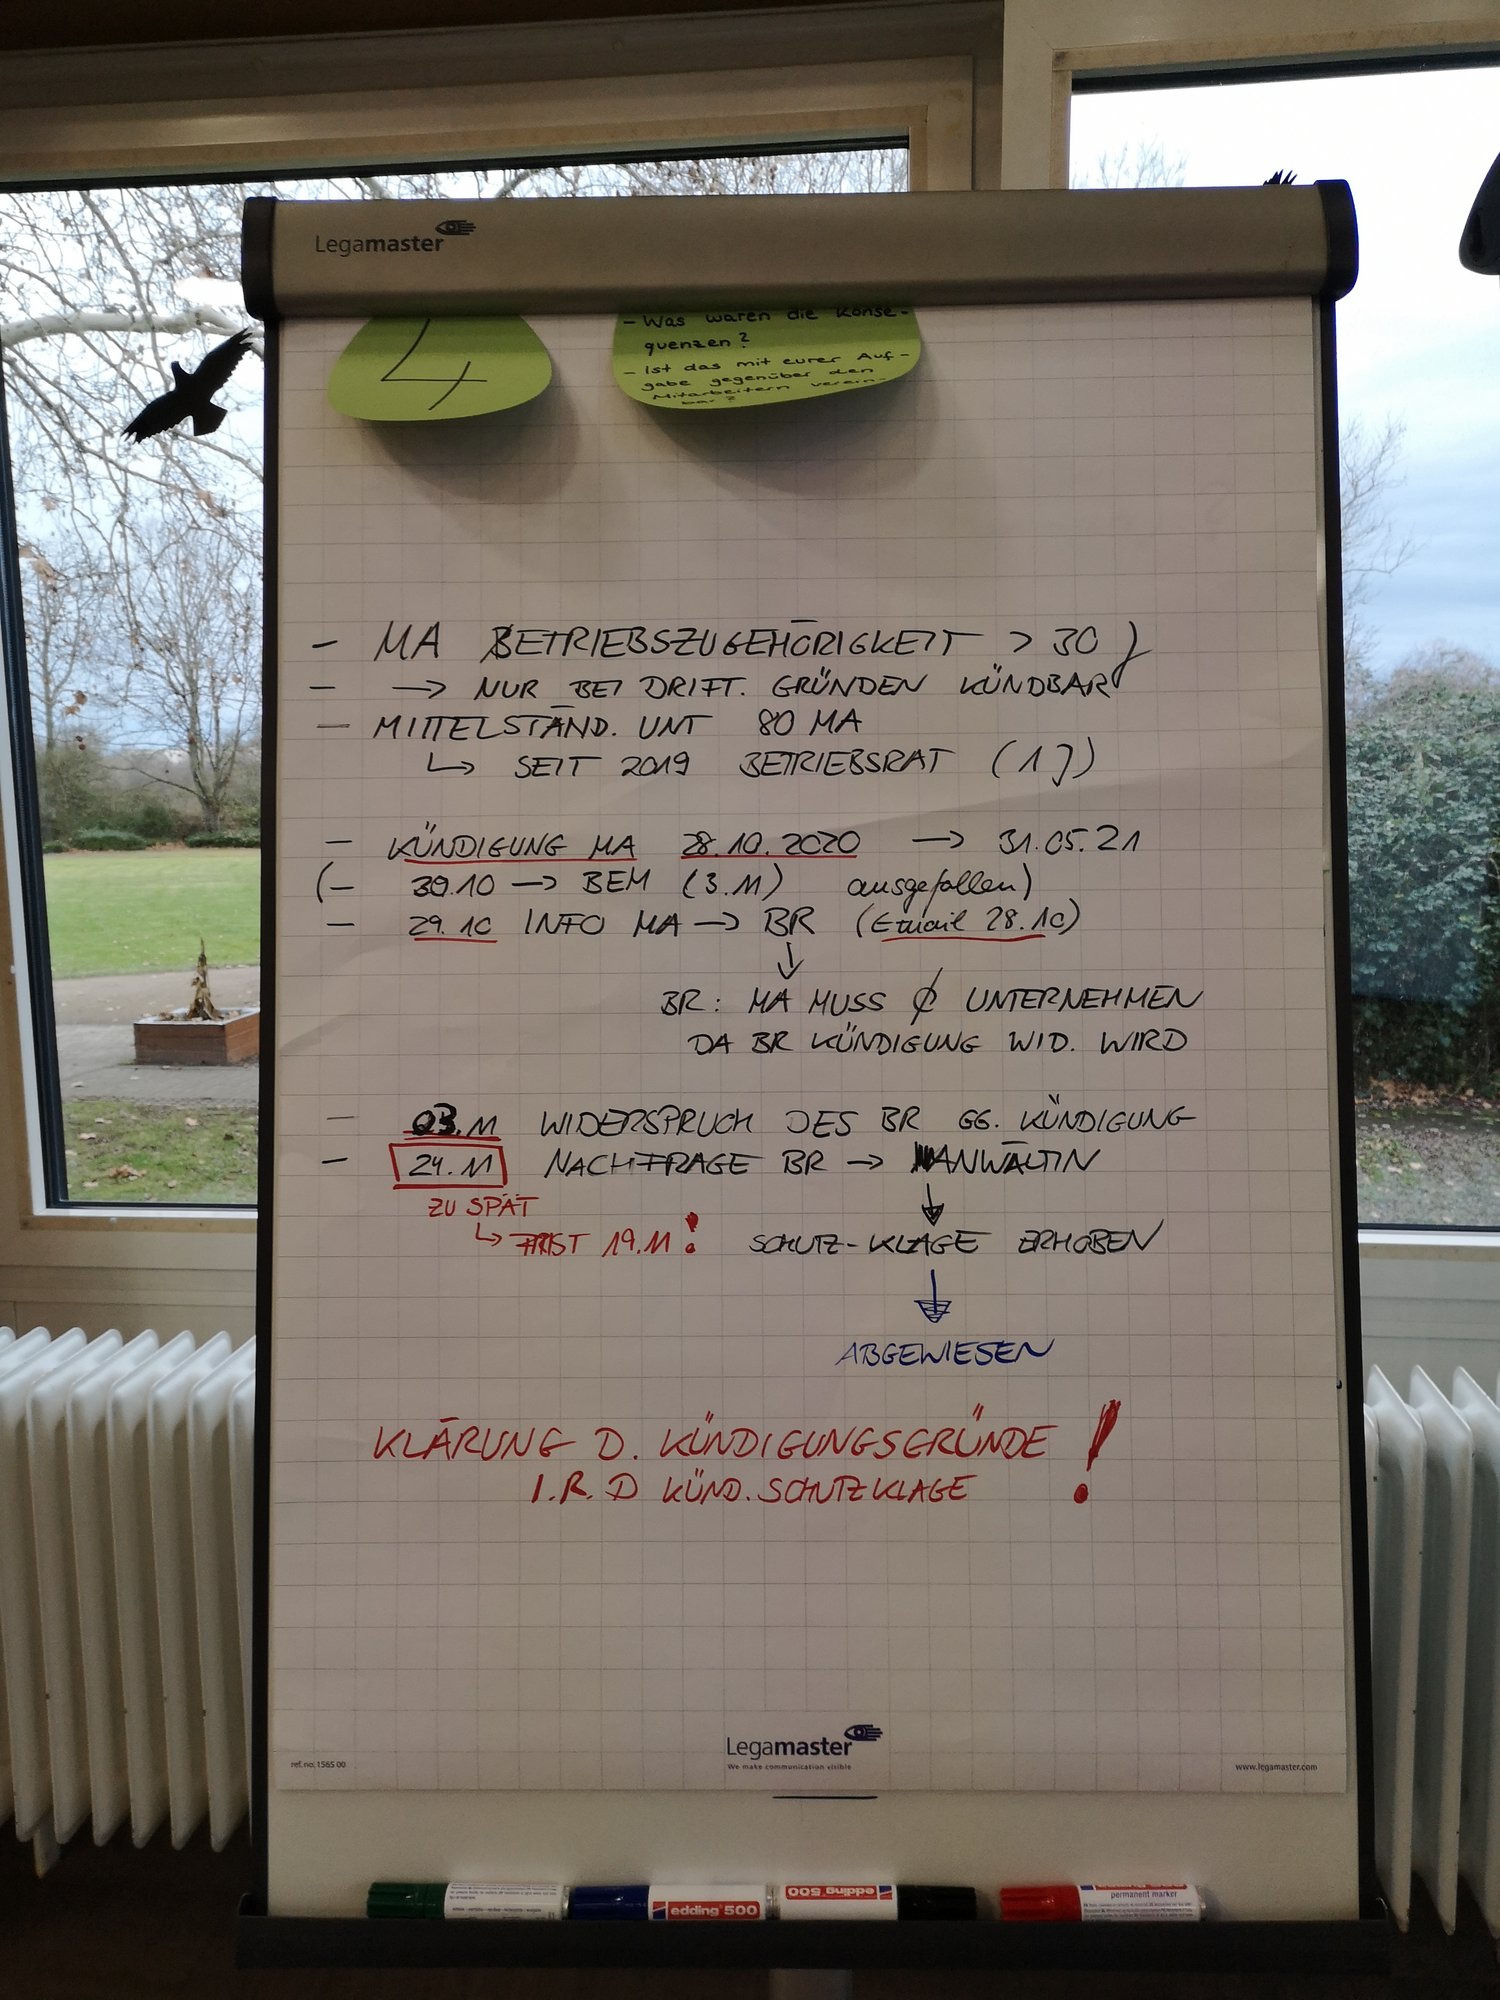 Legamaster
4
- Was waren die Konse-
quenzen?
- Ist das mit eurer Auf-
gabe gegenüber den
Mitarbeitern verein-
bar?
- MA BETRIEBSZUGEHÖRIGKEIT > 30 J
- → NUR BEI DRIFT. GRÜNDEN KÜNDBAR
- MITTELSTÄND. UNT 80 MA
↳ SEIT 2019 BETRIEBSRAT (1 J)
- KÜNDIGUNG MA 28.10.2020 → 31.05.21
(- 30.10 → BEM (3.11) ausgefallen)
- 29.10 INFO MA → BR (Email 28.10)
↓
BR: MA MUSS UNTERNEHMEN
DA BR KÜNDIGUNG WID. WIRD
- 03.11 WIDERSPRUCH DES BR GG. KÜNDIGUNG
- 24.11 NACHFRAGE BR → ANWÄLTIN
ZU SPÄT ↓
↳ FRIST 19.11! SCHUTZ-KLAGE ERHOBEN
↓
ABGEWIESEN
KLÄRUNG D. KÜNDIGUNGSGRÜNDE !
I.R.D KÜND.SCHUTZKLAGE
Legamaster
We make communication visible
ref.no: 1565 00
www.legamaster.com
edding 500
edding 500
permanent marker